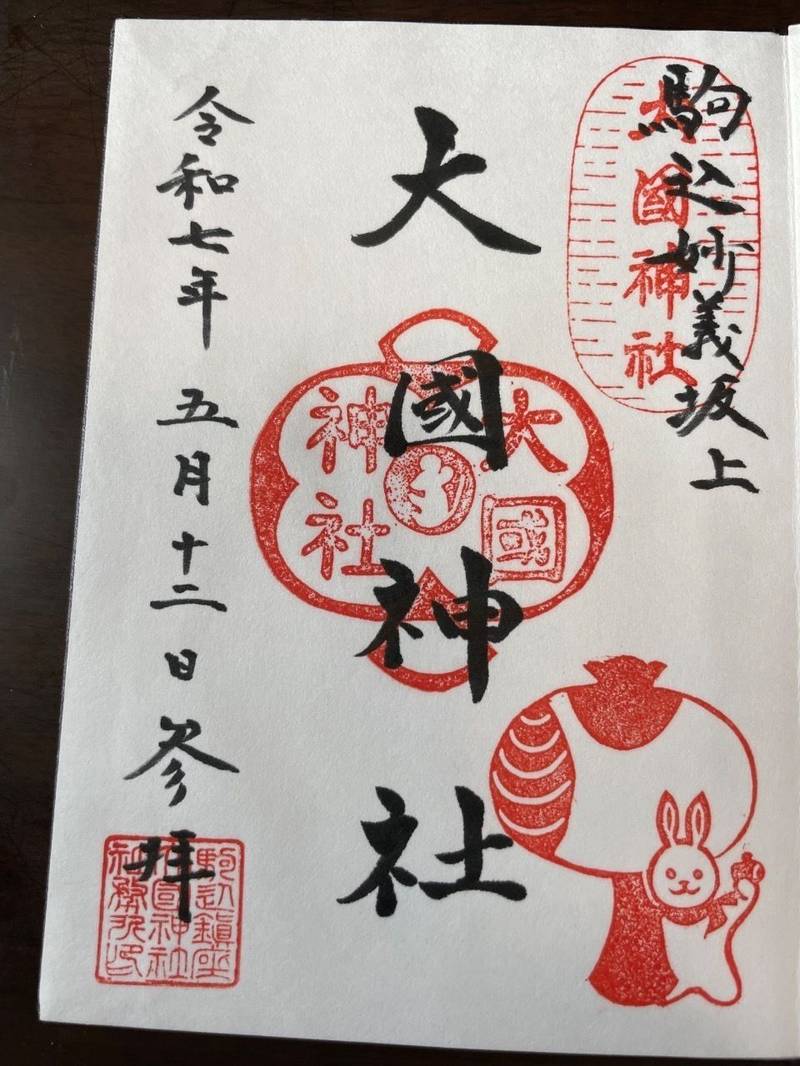 駒込妙義坂上
大國神社
大國神社
大國神社
令和七年 五月十二日 参拝
駒込鎮座
大国神社
社務所印